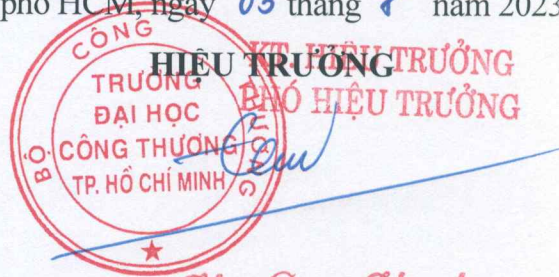 phố HCM, ngày 03 tháng 8 năm 2023
HIỆU TRƯỞNG
KT. HIỆU TRƯỞNG
PHÓ HIỆU TRƯỞNG
BỘ CÔNG THƯƠNG
TRƯỜNG
ĐẠI HỌC
CÔNG THƯƠNG
TP. HỒ CHÍ MINH